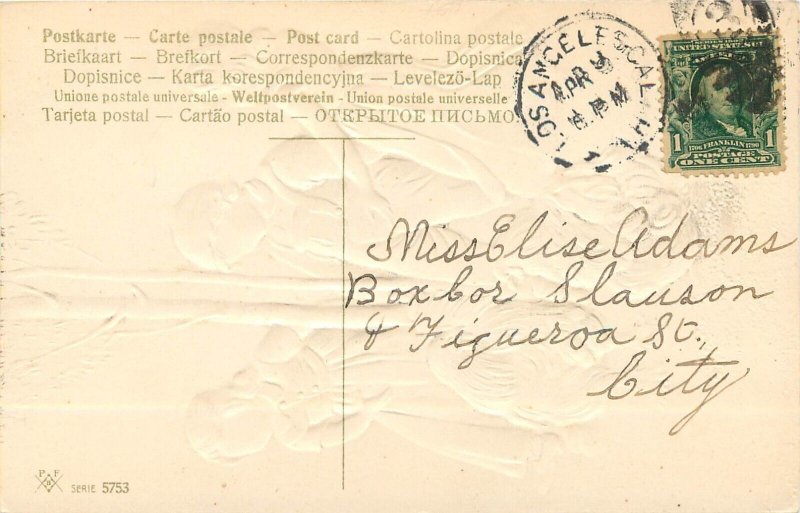 Postkarte — Carte postale — Post card — Cartolina postale
Briefkaart — Brefkort — Correspondenzkarte — Dopisnica
Dopisnice — Karta korespondencyjna — Levelező-Lap
Unione postale universale - Weltpostverein - Union postale universelle
Tarjeta postal — Cartão postal — ОТКРЫТОЕ ПИСЬМО.
LOS ANGELES, CAL.
APR
PM
UNITED STATES
1 1
1706 FRANKLIN 1790
POSTAGE
ONE CENT
Miss Elise Adams
Box cor Slauson
& Figueroa St.,
City
P F
B
SERIE 5753